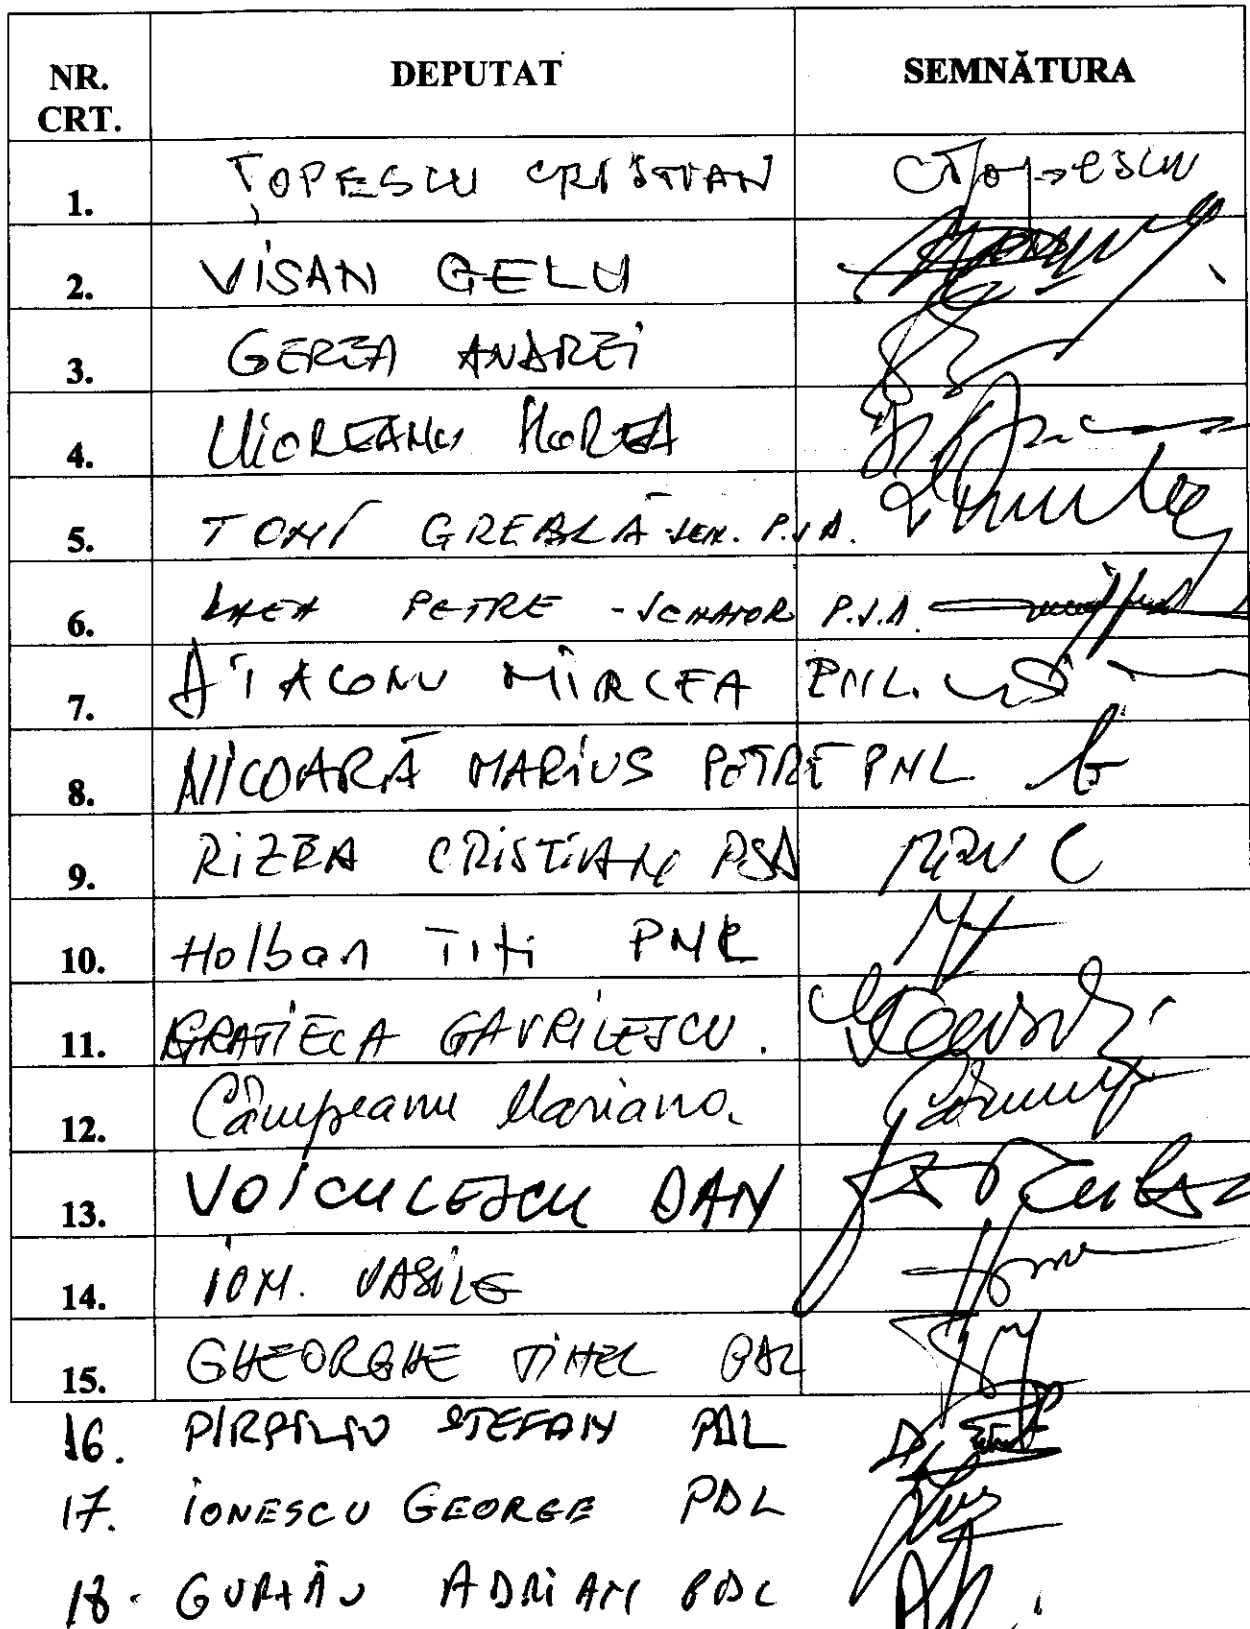 NR. CRT. DEPUTAT SEMNĂTURA
1. ȚOPESCU CRISTIAN CȚopescu
2. VISAN GELU
3. GEREA ANDREI
4. UIOREANU HOREA
5. TONI GREBLĂ - SEN. P.S.D.
6. PETRE - SENATOR P.S.D.
7. DIACONU MIRCEA PNL.
8. NICOARĂ MARIUS PETRE PNL
9. RIZEA CRISTIAN PSD
10. Holban Titi PNL
11. GRATIELA GAVRILESCU.
12. Câmpeanu Mariana
13. VOICULESCU DAN
14. ION. VASILE
15. GHEORGHE TINEL PDL
16. PIRPILIU STEFAN PDL
17. IONESCU GEORGE PDL
18. GURZĂU ADRIAN PDL